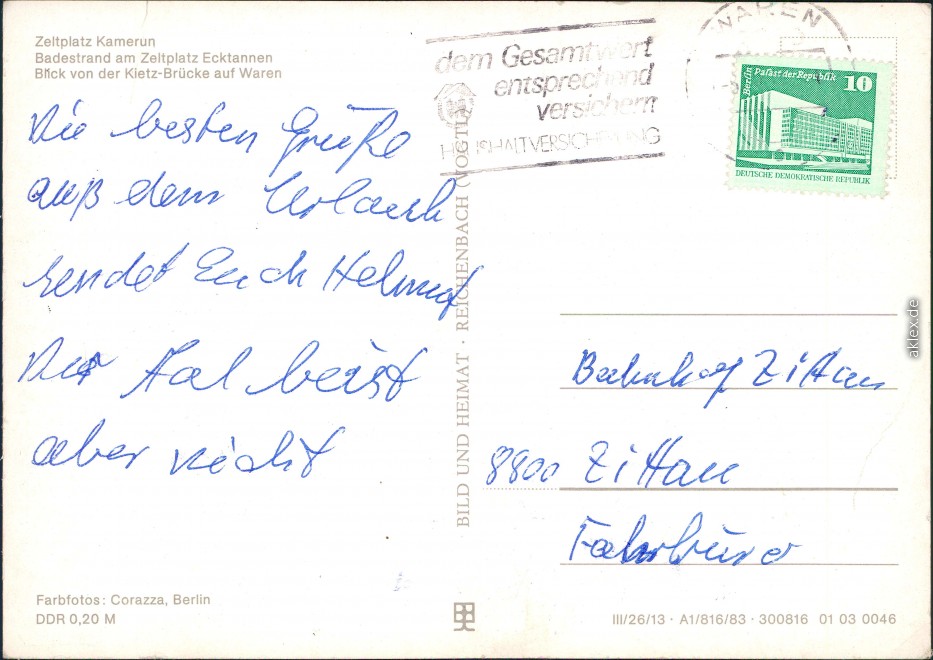 Zeltplatz Kamerun
Badestrand am Zeltplatz Ecktannen
Blick von der Kietz-Brücke auf Waren
Die besten Grüße
auß dem Urlaub
sendet Euch Helmut
Der Aal beist
aber nicht
Farbfotos: Corazza, Berlin
DDR 0,20 M
BILD UND HEIMAT · REICHENBACH (VOGTL)
dem Gesamtwert
entsprechend
versichern
HAUSHALTVERSICHERUNG
WAREN
Berlin
Palast der Republik
10
DEUTSCHE DEMOKRATISCHE REPUBLIK
Bahnhof Zittau
8800 Zittau
Fahrbüro
III/26/13 · A1/816/83 · 300816 01 03 0046
aklex.de